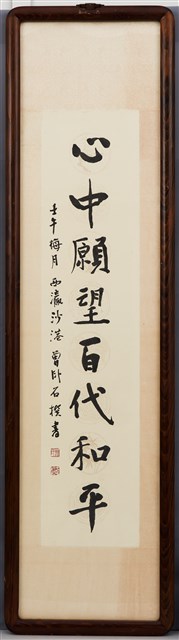 心中願望百代和平
壬午梅月 西瀛沙港 曾卧石撰書